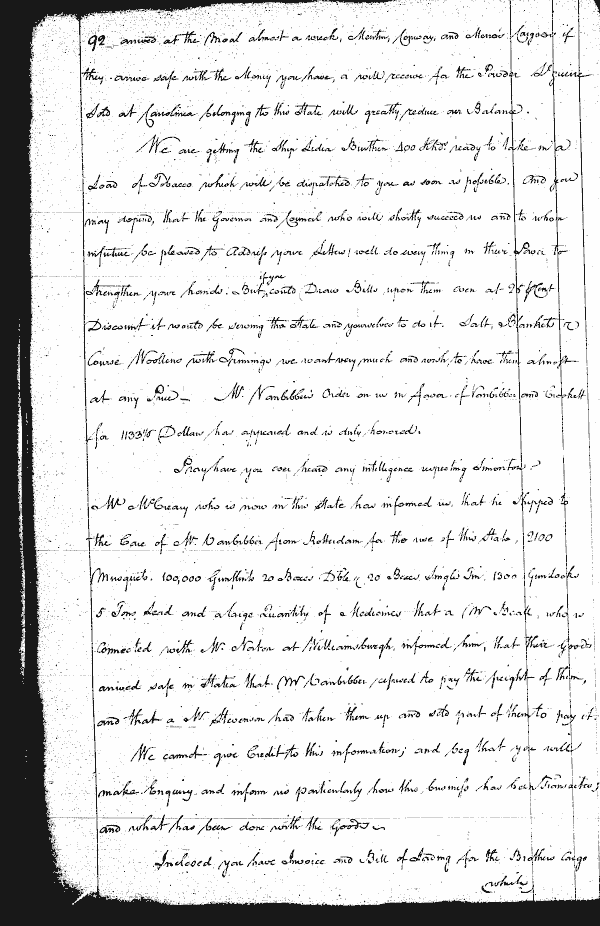 92 arrived at the Moal almost a wreck, Mentin, Conway, and Mercer Cargoes if
they arrive safe with the Money you have, a will receive for the Powder
Sold at Carolinea belonging to this State will greatly reduce our Balance.
We are getting the Ship Lidia Burthen 400 Hhds. ready to take in a
Load of Tobacco which will be dispatched to you as soon as possible. And you
may depend, that the Governor and Council who will shortly succeed us and to whom
infuture be pleased to Address your Letters, well do every thing in their Power to
Strengthen your hands. But, if you could Draw Bills upon them even at 25 ⅌ Cent
Discount it would be serving the State and yourselves to do it. Salt, Blankets &
Course Woollens with Trimings we want very much and wish to have them almost
at any Price — Mr. Vanbibber's Order on us in favor of Vanbibber and Crockett
for 1133⅓ Dollars has appeared and is duly honored.
Pray have you ever heard any intelligence respecting Simonton
Mr. McCreary who is now in this State has informed us, that he Shipped to
the Care of Mr. Vanbibber from Rotterdam for the use of this State, 2100
Musquets. 100,000 Gunflints 20 Boxes Dble & 20 Boxes Single Tin. 1300 Gunlocks
5 Tons Lead and a large Quantity of Medicines that a Mr Beall, who is
Connected with Mr. Naton at Williamsburgh, informed him, that their Goods
arrived safe in Statia that Mr. Vanbibber refused to pay the freight of them,
and that a Mr Stevenson had taken them up and sold part of them to pay it.
We cannot give Credit to this information; and beg that you will
make Enquiry and inform us particularly how this business has been Transacted,
and what has been done with the Goods
Inclosed you have Invoice and Bill of Lading for the Brothers Cargo
which